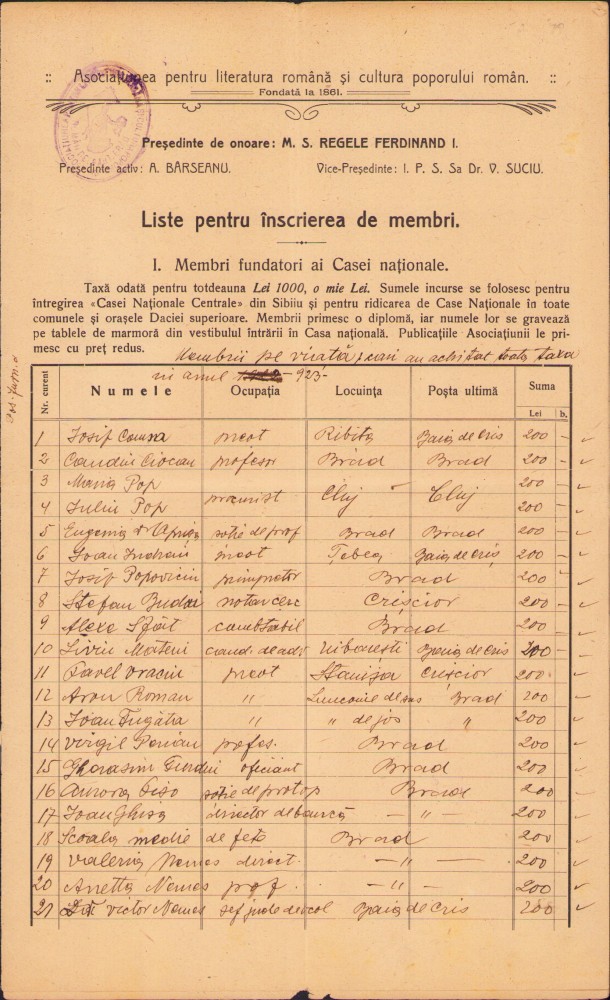 :: Asociațiunea pentru literatura română și cultura poporului român. ::
Fondată la 1861.
Președinte de onoare: M. S. REGELE FERDINAND I.
Președinte activ: A. BÂRSEANU. Vice-Președinte: I. P. S. Sa Dr. V. SUCIU.
Liste pentru înscrierea de membri.
I. Membri fundatori ai Casei naționale.
Taxă odată pentru totdeauna Lei 1000, o mie Lei. Sumele incurse se folosesc pentru
întregirea «Casei Naționale Centrale» din Sibiiu și pentru ridicarea de Case Naționale în toate
comunele și orașele Daciei superioare. Membrii primesc o diplomă, iar numele lor se gravează
pe tablele de marmoră din vestibulul intrării în Casa națională. Publicațiile Asociațiunii le pri-
mesc cu preț redus.
Membrii pe viață, cari au achitat toată taxa
in anul 923
Nr. curent Numele Ocupația Locuința Poșta ultimă Suma
Lei b.
1 Iosif Comșa preot Ribița Baia de Criș 200 –
2 Candin Ciocan profesor Brad Brad 200 –
3 Maria Pop 200 –
procurist Cluj Cluj
4 Iuliu Pop 200 –
5 Eugenia soție de prof Brad Brad 200 –
6 Ioan Indrein preot Țebea Baia de Criș 200 –
7 Iosif Popoviciu Brad 200 –
8 Stefan Budoi notar cerc Crișcior 200 –
9 Alexe Sfât contabil Brad 200 –
10 Liviu Mateiu cand. de adv Ribicești Baia de Criș 200 –
11 Pavel preot Stanișa Crișcior 200
12 Aron Roman " Luncoiul de sus Brad 200
13 Ioan Fugăția " " de jos " 200
14 Virgil profes. Brad 200
15 Gherasim oficiant Brad 200
16 Aurora soție de protop Brad 200
17 Ioan Ghișa director de bancă – " – 200
18 Școala medie de fete Brad 200
19 Valeria Nemeș direct. – " – 200
20 Anetta Nemeș prof. – " – 200
21 Dr Victor Nemeș șef jude de ocol Baia de Criș 200